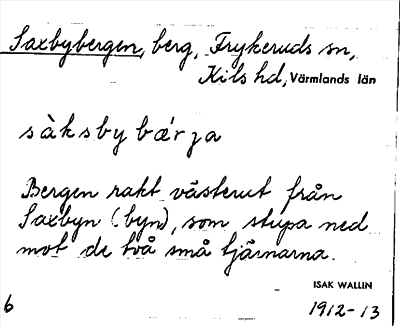 Saxbybergen, berg, Frykeruds sn,
Kils hd, Värmlands län
sàksby bǽrja
Bergen rakt västerut från
Saxbyn (byn), som stupa ned
mot de två små tjärnarna.
ISAK WALLIN
6 1912-13